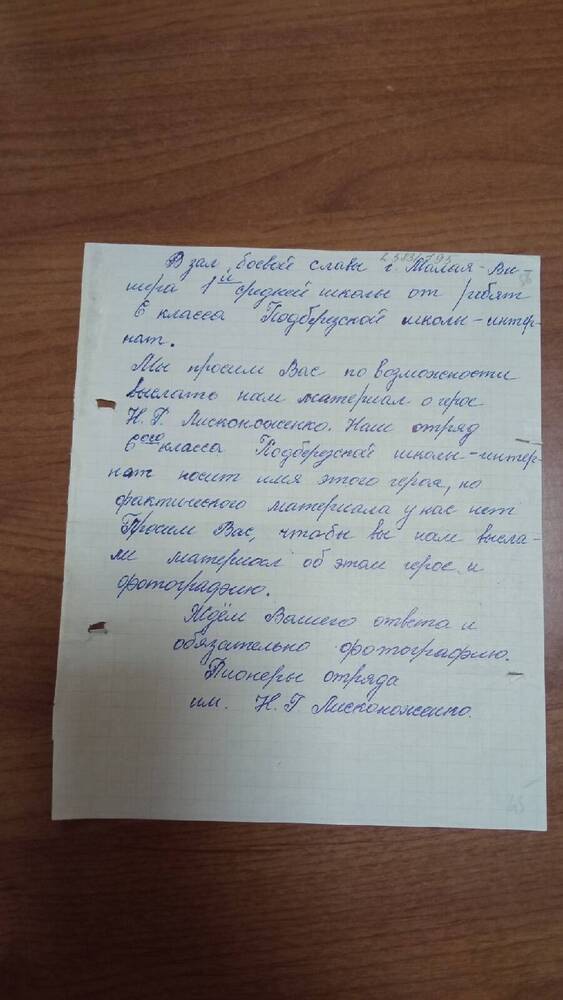 В зал боевой славы г. Малая-Ви
шера 1й средней школы от ребят
6 класса Подберезской школы-интер-
нат.
Мы просим Вас по возможности
выслать нам материал о герое
Н. Г. Лисконоженко. Наш отряд
6ого класса Подберезской школы-интер-
нат носит имя этого героя, но
фактического материала у нас нет
Просим Вас, чтобы вы нам высла-
ли материал об этом герое и
фотографию.
Ждём Вашего ответа и
обязательно фотографию.
Пионеры отряда
им. Н. Г Лисконоженко.